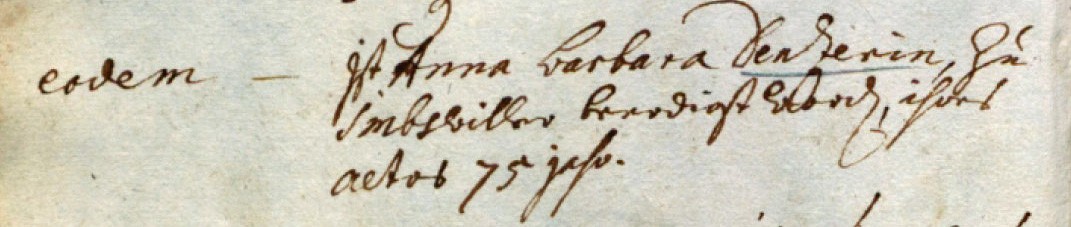 eodem — ist Anna Barbara Denzerin, Zu
Imbswiller beerdigt word, ihres
alters 75 jahr.